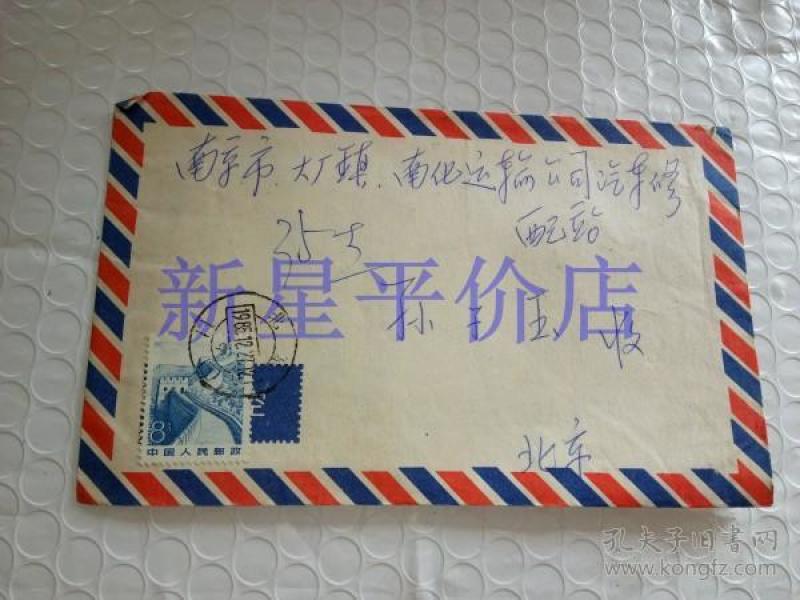 南京市.大厂镇.南化运输公司汽车修
配站
孙
玉 收
新星平价店
1986.12.27
8分
中国人民邮政
北京
孔夫子旧書网
www.kongfz.com